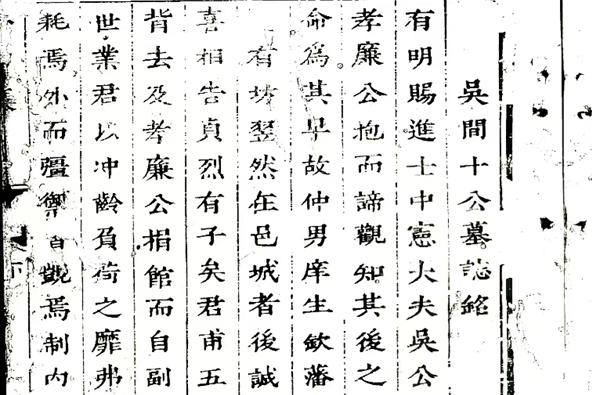 吳間十公墓誌銘
有明賜進士中憲大夫吳公
孝廉公抱而諦觀知其後之
命為其早故仲男庠生欽藩
有坊翌然在邑城者後誠
喜相告貞烈有子矣君甫五
背去及孝廉公捐館而自副
世業君以冲齡負荷之靡弗
耗焉外而疆禦自覬焉制內